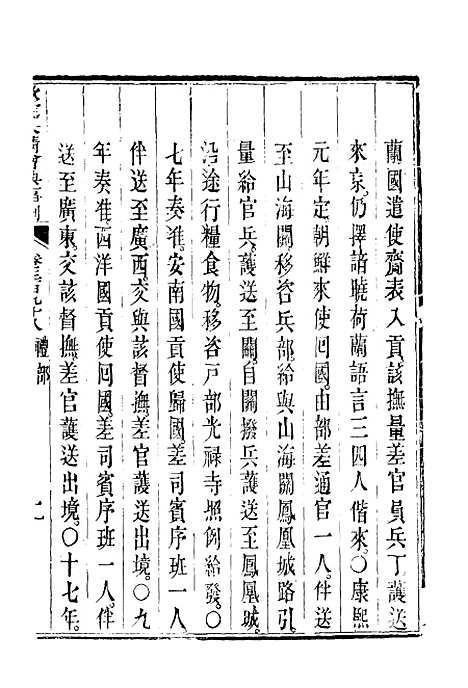 蘭國遣使齎表入貢該撫量差官員兵丁護送
來京仍擇諳曉荷蘭語言三四人偕來○康熙
元年定朝鮮來使回國由部差通官一人伴送
至山海關移咨兵部給與山海關鳳凰城路引
量給官兵護送至關自關撥兵護送至鳳凰城
沿途行糧食物移咨戶部光祿寺照例給發○
七年奏准安南國貢使歸國差司賓序班一人
伴送至廣西交與該督撫差官護送出境○九
年奏准西洋國貢使回國差司賓序班一人伴
送至廣東交該督撫差官護送出境○十七年
大清會典事例
禮部